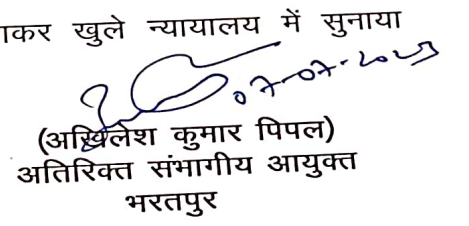 ाकर खुले न्यायालय में सुनाया
07-07-2025
(अखिलेश कुमार पिपल)
अतिरिक्त संभागीय आयुक्त
भरतपुर